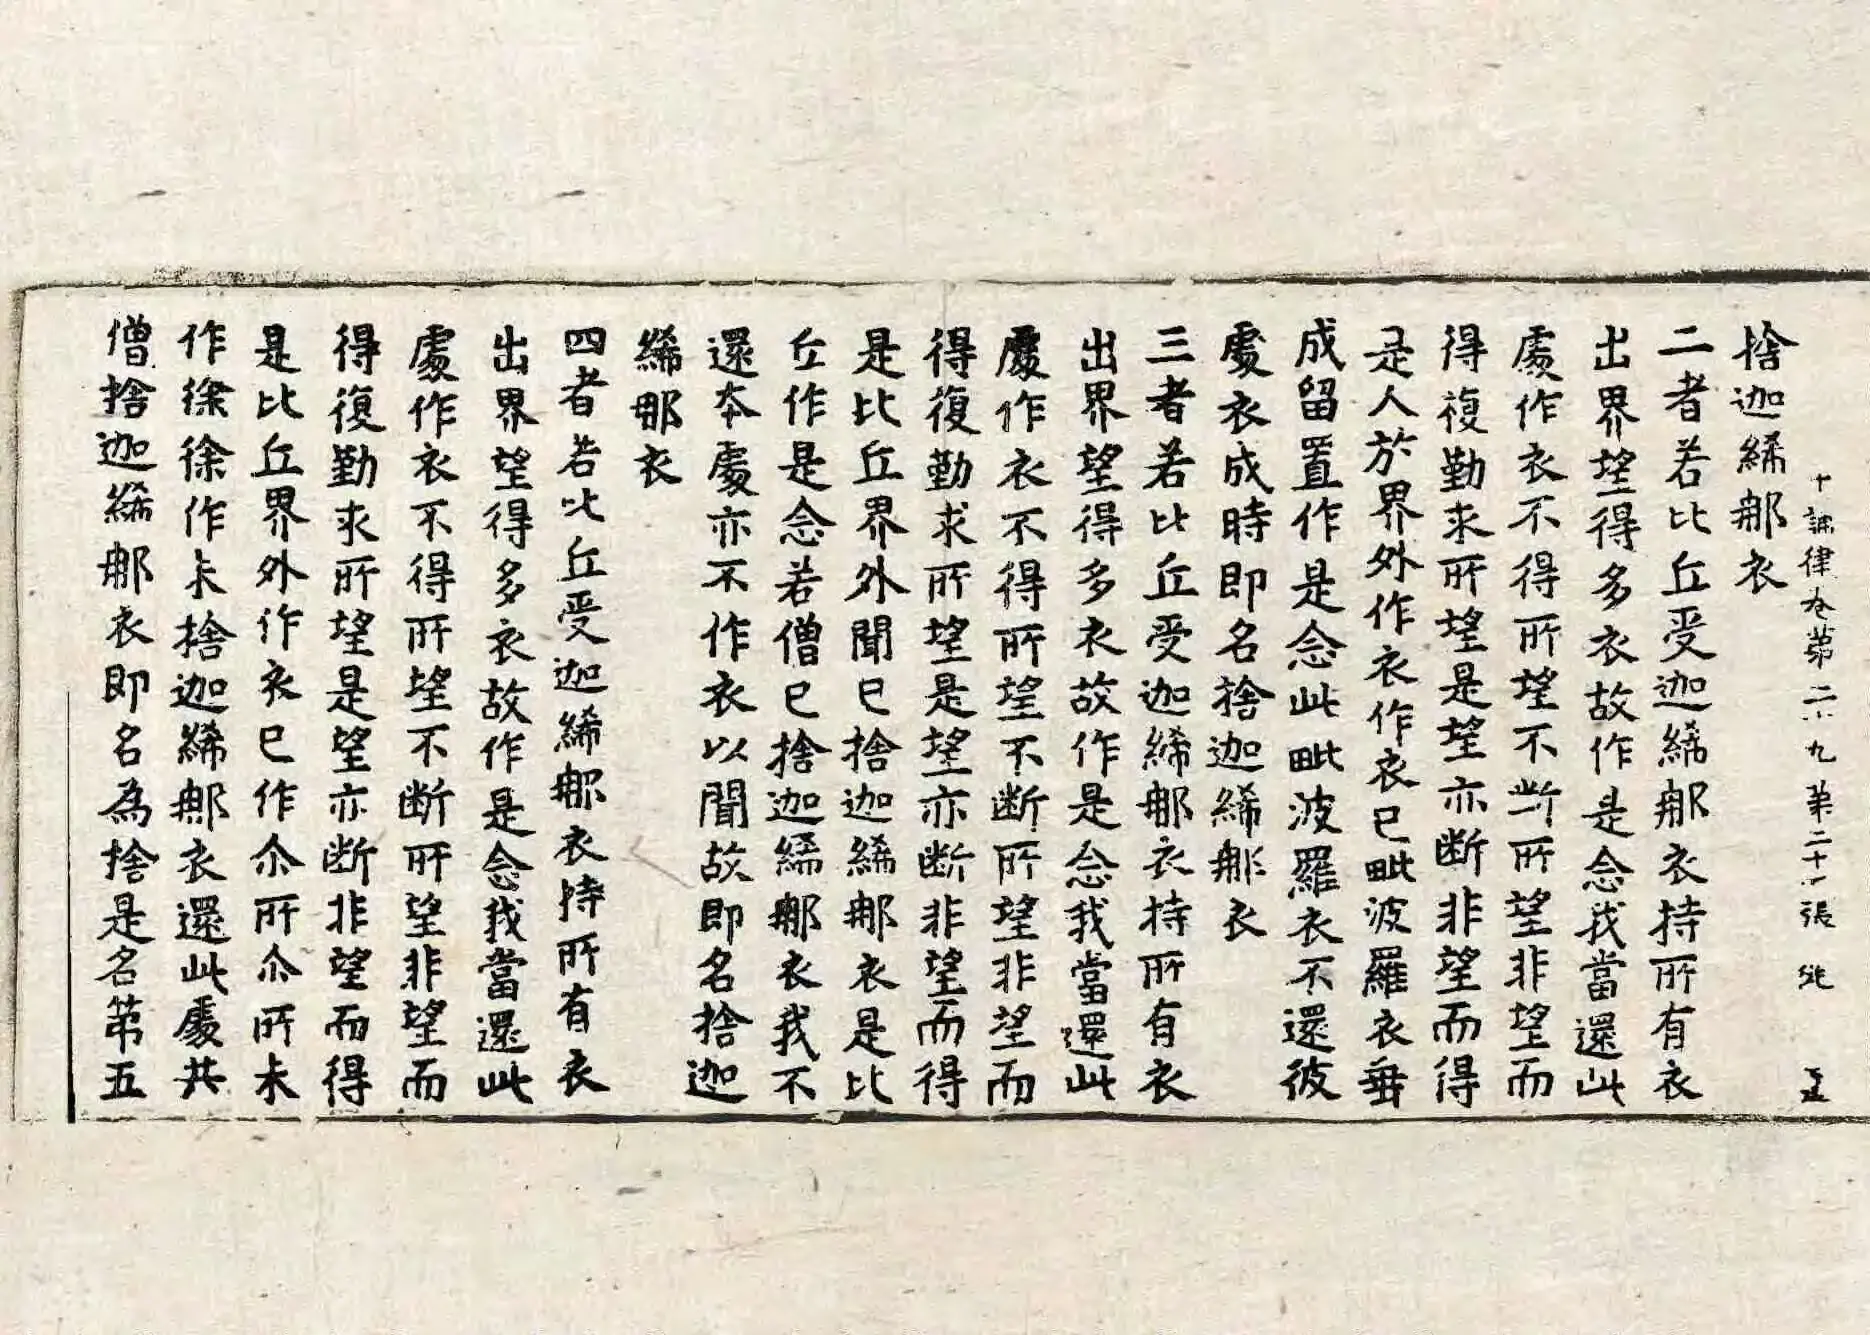 十誦律卷第二十九 第二十張 𠒇
捨迦絺那衣
二者若比丘受迦絺那衣持所有衣
出界望得多衣故作是念我當還此
處作衣不得所望不断所望非望而
得復勤求所望是望亦断非望而得
是人於界外作衣作衣已毗波羅衣垂
成留置作是念此毗波羅衣不還彼
處衣成時即名捨迦絺那衣
三者若比丘受迦絺那衣持所有衣
出界望得多衣故作是念我當還此
處作衣不得所望不断所望非望而
得復勤求所望是望亦断非望而得
是比丘界外聞已捨迦絺那衣是比
丘作是念若僧已捨迦絺那衣我不
還本處亦不作衣以聞故即名捨迦
絺那衣
四者若比丘受迦絺那衣持所有衣
出界望得多衣故作是念我當還此
處作衣不得所望不断所望非望而
得復勤求所望是望亦断非望而得
是比丘界外作衣已作尒所尒所未
作徐徐作未捨迦絺那衣還此處共
僧捨迦絺那衣即名為捨是名第五